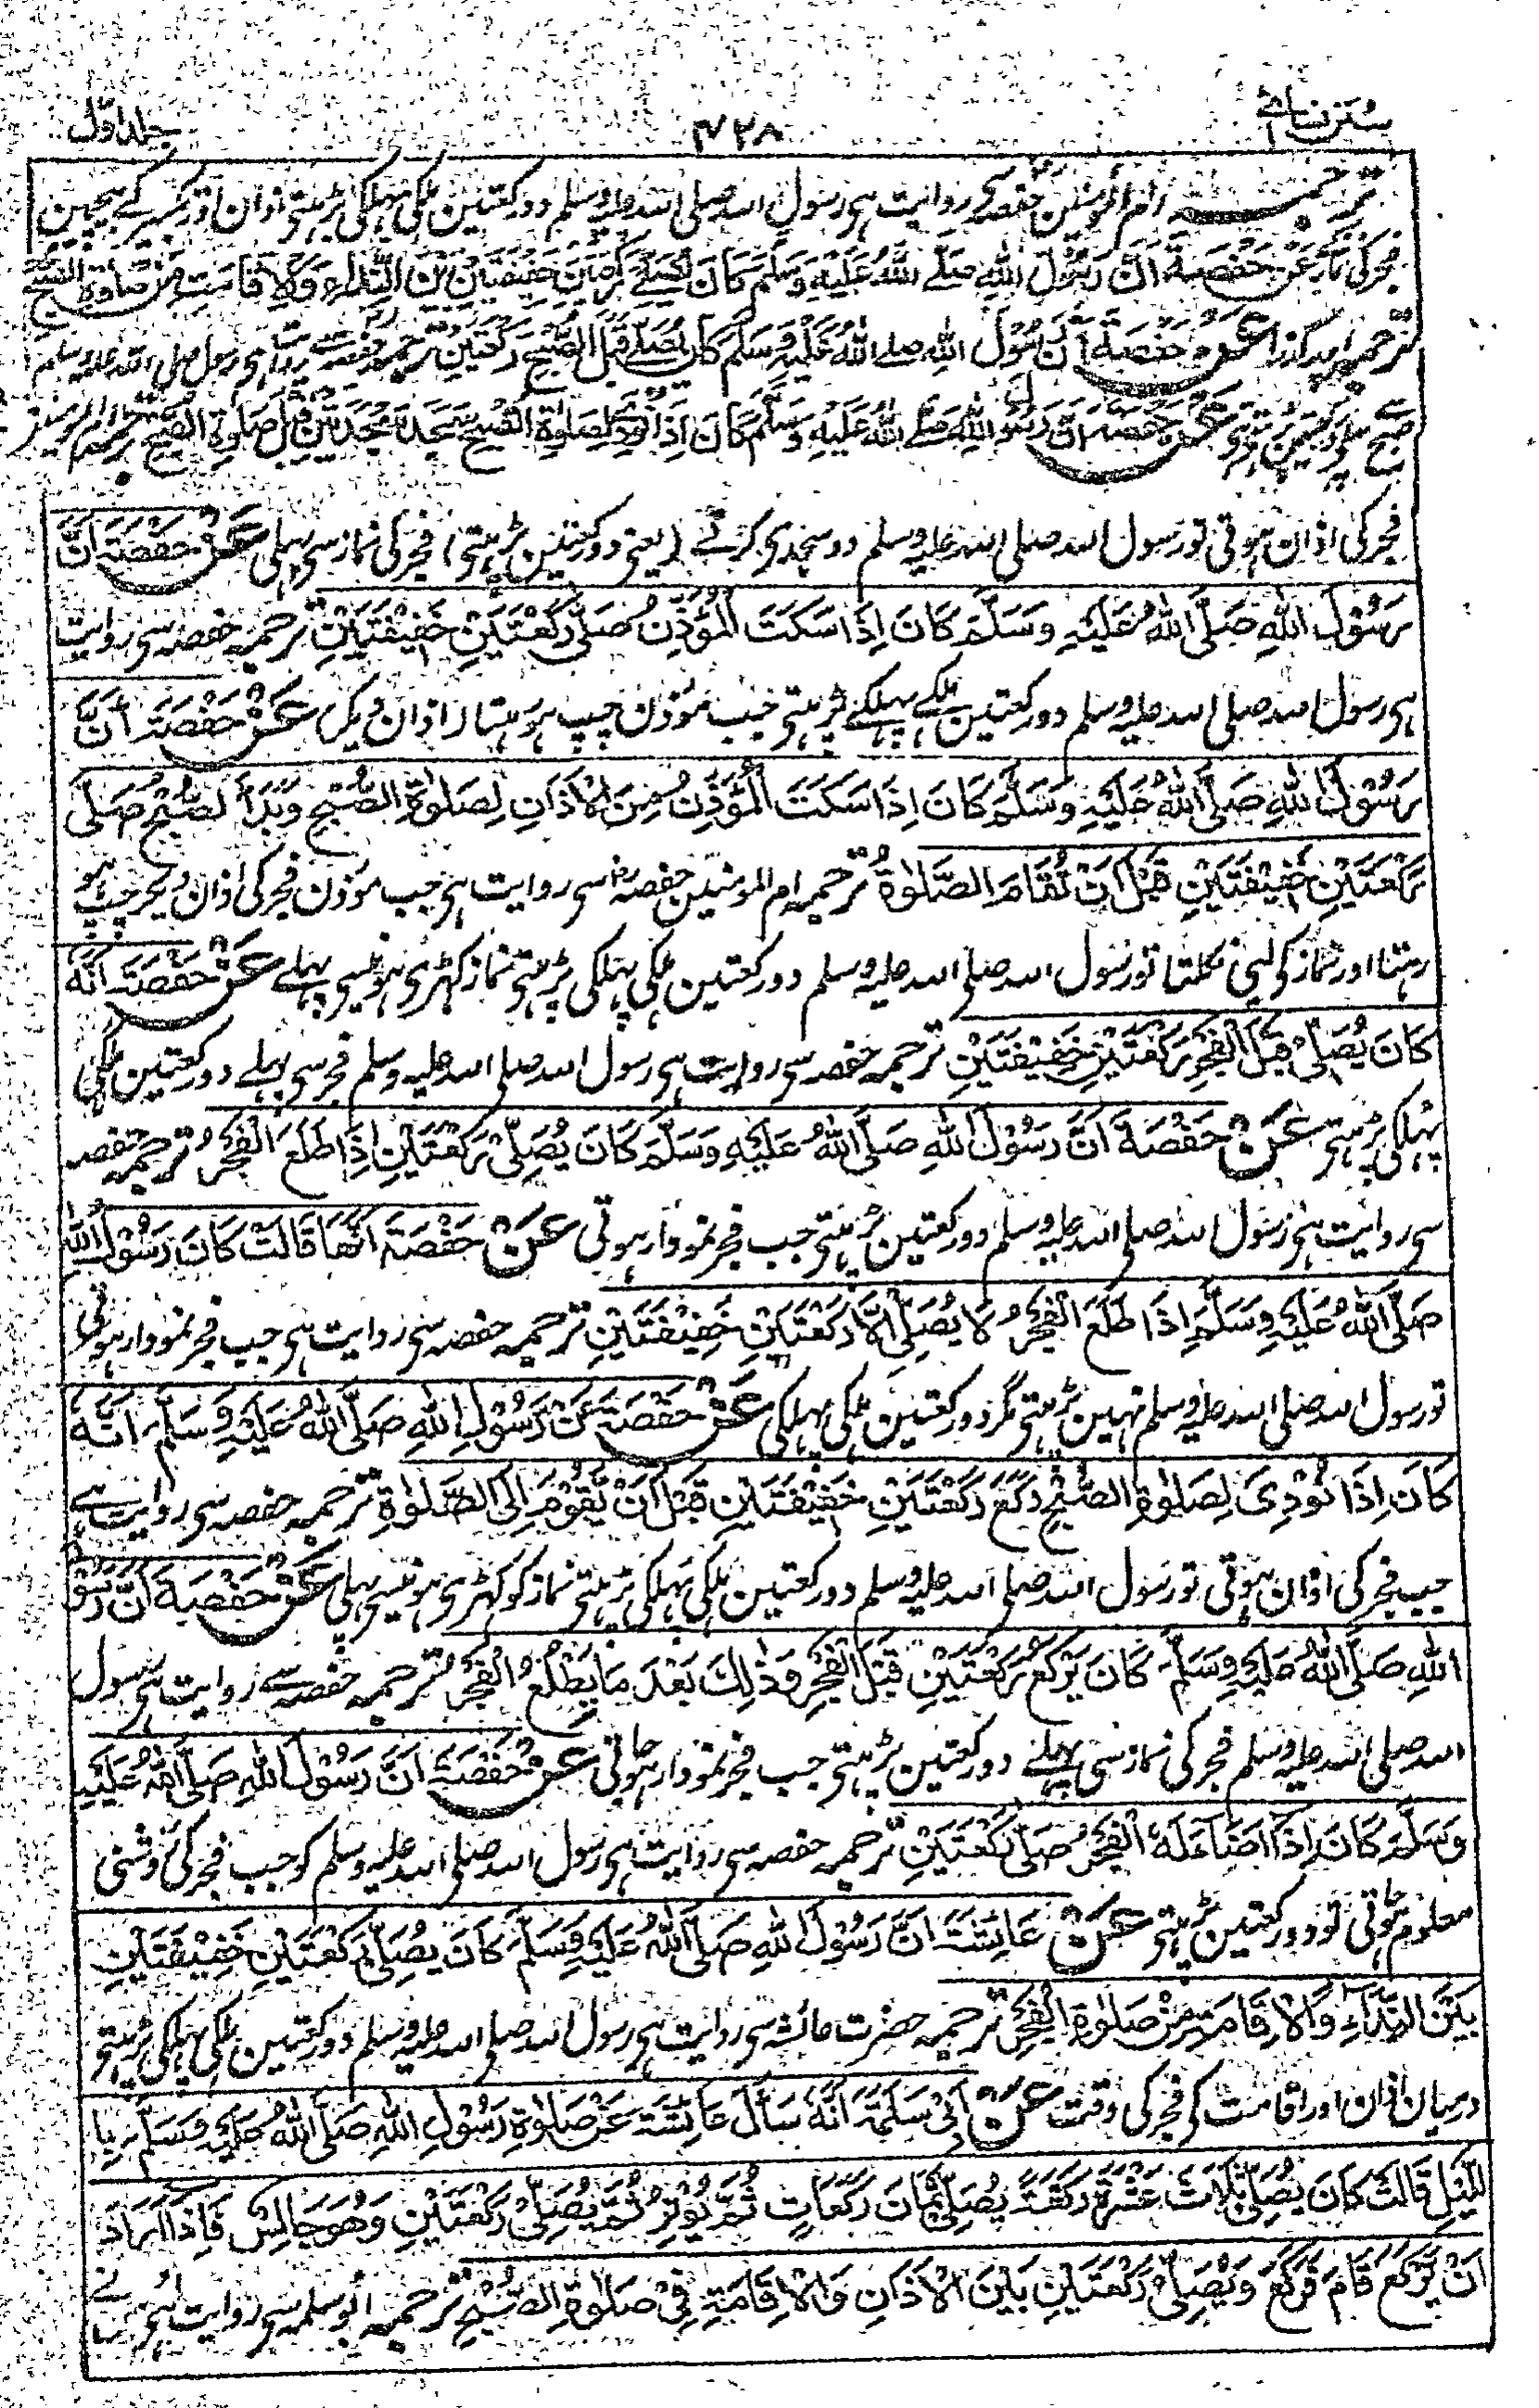 سنن نسائی ۴۲۸ جلد اول
ترجمہ ام المومنین حفصہ سی روایت ہی رسول اللہ صلی اللہ علیہ وسلم دو رکعتین ہلکی پہلکی پڑہتی اذان اور تکبیر کے بیچین
فجر کی نماز عَنْ حَفْصَةَ اَنَّ رَسُوْلَ اللهِ صَلَّے اللهُ عَلَيْهِ وَسَلَّمَ كَانَ يُصَلِّے رَكْعَتَيْنِ خَفِيْفَتَيْنِ بَيْنَ النِّدَاءِ وَالْاِقَامَةِ مِنْ صَلٰوةِ الصُّبْحِ
ترجمہ اوپر گذرا عَنْ حَفْصَةَ اَنَّ رَسُوْلَ اللهِ صلے اللهُ عَلَيْهِ وَسَلَّمَ كَانَ يُصَلِّے قَبْلَ الصُّبْحِ رَكْعَتَيْنِ ترجمہ حفصہ سے روایت ہی رسول صلی اللہ علیہ وسلم
صبح سے پہلی دو رکعتین پڑہتی عَنْ حَفْصَةَ اَنَّ رَسُوْلَ اللهِ صَلَّے اللهُ عَلَيْهِ وَسَلَّمَ كَانَ اِذَا نُوْدِيَ لِصَلٰوةِ الصُّبْحِ سَجَدَ سَجْدَتَيْنِ قَبْلَ صَلٰوةِ الصُّبْحِ ترجمہ ام المومنین
فجر کی اذان ہوتی تو رسول اللہ صلی اللہ علیہ وسلم دو سجدی کرتے (یعنی دو رکعتین پڑہتی) فجر کی نماز سی پہلی عَنْ حَفْصَةَ اَنَّ
رَسُوْلَ اللهِ صَلَّى اللهُ عَلَيْهِ وَسَلَّمَ كَانَ اِذَا سَكَتَ الْمُؤَذِّنُ صَلّٰى رَكْعَتَيْنِ خَفِيْفَتَيْنِ ترجمہ حفصہ سی روایت
ہی رسول اللہ صلی اللہ علیہ وسلم دو رکعتین ہلکے پہلکے پڑہتی جب موذن چپ ہو رہتا اذان دیکر عَنْ حَفْصَةَ اَنَّ
رَسُوْلَ اللهِ صَلَّى اللهُ عَلَيْهِ وَسَلَّمَ كَانَ اِذَا سَكَتَ الْمُؤَذِّنُ مِنَ الْاَذَانِ لِصَلٰوةِ الصُّبْحِ وَبَدَأَ الصُّبْحُ صَلّٰى
رَكْعَتَيْنِ خَفِيْفَتَيْنِ قَبْلَ اَنْ تُقَامَ الصَّلٰوةُ ترجمہ ام المومنین حفصہ سی روایت ہی جب موذن فجر کی اذان دیکر چپ ہو
رہتا اور نماز کو لیئی نکلتا تو رسول اللہ صلی اللہ علیہ وسلم دو رکعتین ہلکی پہلکی پڑہتی نماز کھڑی ہونیسی پہلے عَنْ حَفْصَةَ اَنَّهُ
كَانَ يُصَلِّيْ قَبْلَ الْفَجْرِ رَكْعَتَيْنِ خَفِيْفَتَيْنِ ترجمہ حفصہ سی روایت ہی رسول اللہ صلی اللہ علیہ وسلم فجر سی پہلے دو رکعتین ہلکی
پہلکی پڑہتی عَنْ حَفْصَةَ اَنَّ رَسُوْلَ اللهِ صَلَّى اللهُ عَلَيْهِ وَسَلَّمَ كَانَ يُصَلِّيْ رَكْعَتَيْنِ اِذَا طَلَعَ الْفَجْرُ ترجمہ حفصہ
سی روایت ہی رسول اللہ صلی اللہ علیہ وسلم دو رکعتین پڑہتی جب فجر نمودار ہوتی عَنْ حَفْصَةَ اَنَّهَا قَالَتْ كَانَ رَسُوْلُ اللهِ
صَلَّى اللهُ عَلَيْهِ وَسَلَّمَ اِذَا طَلَعَ الْفَجْرُ لَا يُصَلِّيْ اِلَّا رَكْعَتَيْنِ خَفِيْفَتَيْنِ ترجمہ حفصہ سی روایت ہی جب فجر نمودار ہوتی
تو رسول اللہ صلی اللہ علیہ وسلم نہین پڑہتی مگر دو رکعتین ہلکی پہلکی عَنْ حَفْصَةَ عَنْ رَسُوْلِ اللهِ صَلَّى اللهُ عَلَيْهِ وَسَلَّمَ اَنَّهُ
كَانَ اِذَا نُوْدِيَ لِصَلٰوةِ الصُّبْحِ رَكَعَ رَكْعَتَيْنِ خَفِيْفَتَيْنِ قَبْلَ اَنْ يَّقُوْمَ اِلَى الصَّلٰوةِ ترجمہ حفصہ سی روایت ہے
جب فجر کی اذان ہوتی تو رسول اللہ صلی اللہ علیہ وسلم دو رکعتین ہلکی پہلکی پڑہتی نماز کو کھڑی ہونیسی پہلی عَنْ حَفْصَةَ اَنَّ رَسُوْلَ
اللهِ صَلَّى اللهُ عَلَيْهِ وَسَلَّمَ كَانَ يَرْكَعُ رَكْعَتَيْنِ قَبْلَ الْفَجْرِ وَذٰلِكَ بَعْدَ مَا يَطْلُعُ الْفَجْرُ ترجمہ حفصہ سے روایت ہی رسول
اللہ صلی اللہ علیہ وسلم فجر کی نماز سی پہلے دو رکعتین پڑہتی جب فجر نمودار ہو جاتی عَنْ حَفْصَةَ اَنَّ رَسُوْلَ اللهِ صَلَّى اللهُ عَلَيْهِ
وَسَلَّمَ كَانَ اِذَا اَضَاءَ لَهُ الْفَجْرُ صَلّٰى رَكْعَتَيْنِ ترجمہ حفصہ سی روایت ہی رسول اللہ صلی اللہ علیہ وسلم کو جب فجر کی روشنی
معلوم ہوتی تو دو رکعتین پڑہتی عَنْ عَائِشَةَ اَنَّ رَسُوْلَ اللهِ صَلَّى اللهُ عَلَيْهِ وَسَلَّمَ كَانَ يُصَلِّيْ رَكْعَتَيْنِ خَفِيْفَتَيْنِ
بَيْنَ النِّدَاءِ وَالْاِقَامَةِ مِنْ صَلٰوةِ الْفَجْرِ ترجمہ حضرت عائشہ سی روایت ہی رسول اللہ صلی اللہ علیہ وسلم دو رکعتین ہلکی پہلکی پڑہتی
درمیان اذان اور اقامت کو فجر کی وقت عَنْ اَبِيْ سَلَمَةَ اَنَّهُ سَأَلَ عَائِشَةَ عَنْ صَلٰوةِ رَسُوْلِ اللهِ صَلَّى اللهُ عَلَيْهِ وَسَلَّمَ بِا
للَّيْلِ قَالَتْ كَانَ يُصَلِّيْ ثَلَاثَ عَشْرَةَ رَكْعَةً يُصَلِّيْ ثَمَانَ رَكَعَاتٍ ثُمَّ يُوْتِرُ ثُمَّ يُصَلِّيْ رَكْعَتَيْنِ وَهُوَ جَالِسٌ فَاِذَا اَرَادَ
اَنْ يَّرْكَعَ قَامَ فَرَكَعَ وَيُصَلِّيْ رَكْعَتَيْنِ بَيْنَ الْاَذَانِ وَالْاِقَامَةِ فِيْ صَلٰوةِ الصُّبْحِ ترجمہ ابو سلمہ سی روایت ہی